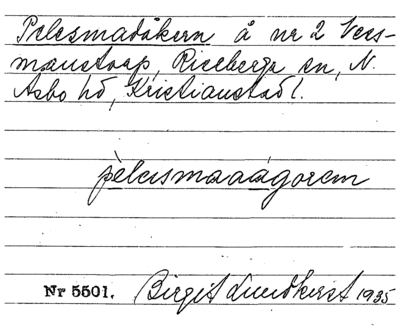 Pelesmadåkern å nr 2 Vers-
manstorp, Riseberga sn, N.
Asbo hd, Kristianstad l.
pèlesmaaàgoren
Nr 5501. Birgit Lundkvist 1935